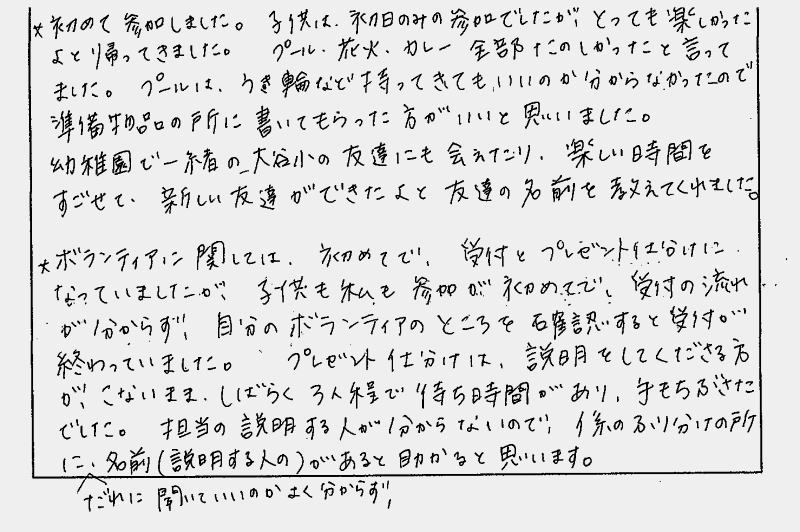 *初めて参加しました。子供は、初日のみの参加でしたが、とっても楽しかった
よと帰ってきました。 プール・花火・カレー 全部たのしかったと言って
ました。プールは、うき輪など持ってきてもいいのか分からなかったので
準備物品の所に書いてもらった方がいいと思いました。
幼稚園で一緒の、大谷小の友達にも会えたり、楽しい時間を
すごせて、新しい友達ができたよと友達の名前を教えてくれました。
*ボランティアに関しては、初めてで、受付とプレゼント仕分けに
なっていましたが、子供も私も参加が初めてで、受付の流れ
が分からず、自分のボランティアのところを確認すると受付が
終わっていました。 プレゼント仕分けは、説明をしてくださる方
が、こないまま、しばらく3人程で待ち時間があり、手もちぶさた
でした。担当の説明する人が分からないので、係のふり分けの所
に、名前(説明する人の)があると助かると思います。
だれに聞いていいのかよく分からず、